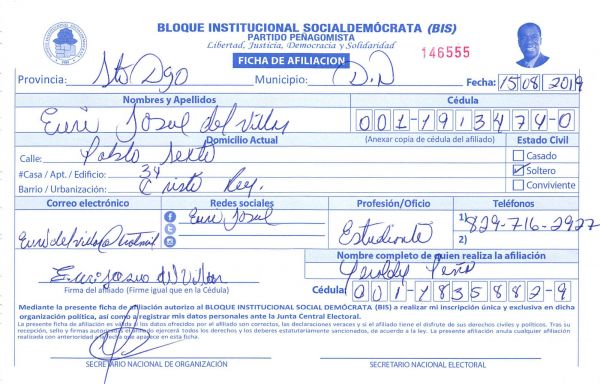 BLOQUE INSTITUCIONAL SOCIALDEMÓCRATA (BIS)
PARTIDO PEÑAGOMISTA
Libertad, Justicia, Democracia y Solidaridad
146555
FICHA DE AFILIACION
Provincia: Sto Dgo Municipio: D.N Fecha: 15/08/2019
Nombres y Apellidos Cédula
Euri Josue del Villar 001-1913474-0
Domicilio Actual (Anexar copia de cédula del afiliado) Estado Civil
Calle: Pablo Sexto Casado
#Casa / Apt. / Edificio: 34 Soltero
Barrio / Urbanización: Cristo Rey. Conviviente
Correo electrónico Redes sociales Profesión/Oficio Teléfonos
Euri Josue 1) 829-716-2927
Estudiante 2)
Nombre completo de quien realiza la afiliación
Euri Josue del Villar Peña
Firma del afiliado (Firme igual que en la Cédula) Cédula: 001-1835882-9
Mediante la presente ficha de afiliación autorizo al BLOQUE INSTITUCIONAL SOCIAL DEMÓCRATA (BIS) a realizar mi inscripción única y exclusiva en dicha
organización política, así como a registrar mis datos personales ante la Junta Central Electoral.
La presente ficha de afiliación es válida si los datos ofrecidos por el afiliado son correctos, las declaraciones veraces y si el afiliado tiene el disfrute de sus derechos civiles y políticos. Tras su
recepción, sello y firmas autorizadas el afiliado ejercerá todos los derechos y los deberes estatutariamente sancionados, de acuerdo a la ley. La presente afiliación anula cualquier afiliación
realizada con anterioridad a la fecha que aparece en esta ficha.
SECRETARIO NACIONAL DE ORGANIZACIÓN SECRETARIO NACIONAL ELECTORAL